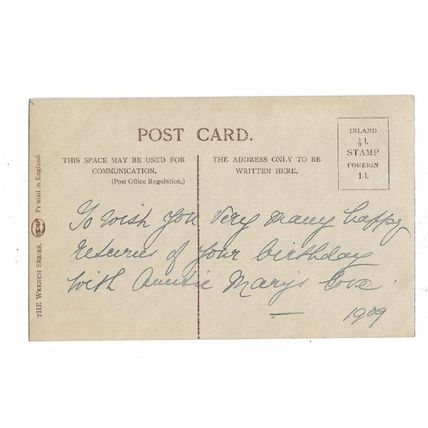 POST CARD.
THIS SPACE MAY BE USED FOR
COMMUNICATION.
(Post Office Regulation.)
THE ADDRESS ONLY TO BE
WRITTEN HERE.
INLAND
½d.
STAMP
FOREIGN
1d.
To wish you very many happy
returns of your birthday
with Auntie Mary's love
1909
THE WRENCH SERIES.
Printed in England.